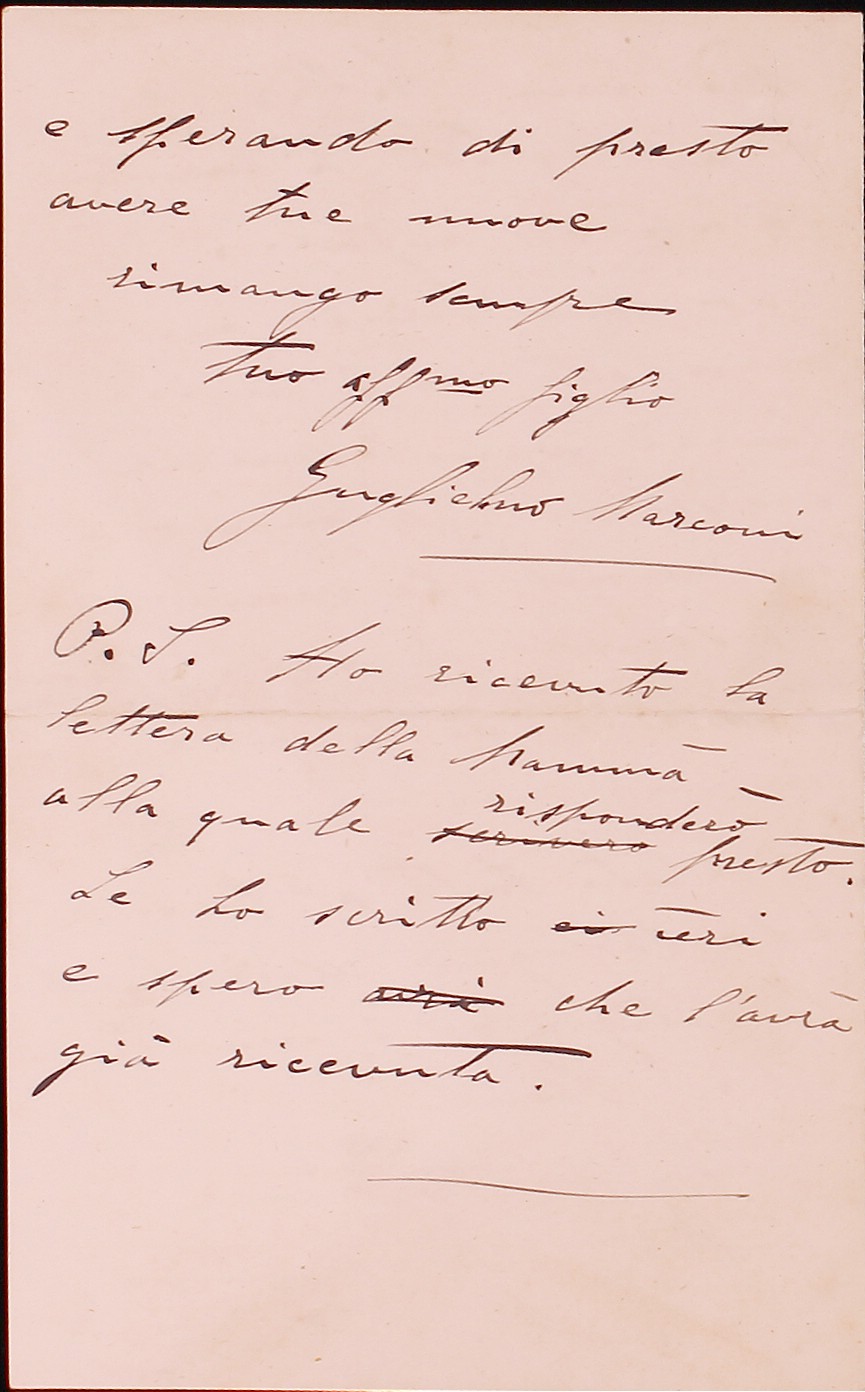 e sperando di presto
avere tue nuove
rimango sempre
tuo affmo figlio
Guglielmo Marconi
P. S. Ho ricevuto la
lettera della Mammà
alla quale scriverò risponderò presto.
Le ho scritto ei ieri
e spero avrà che l'avrà
già ricevuta.